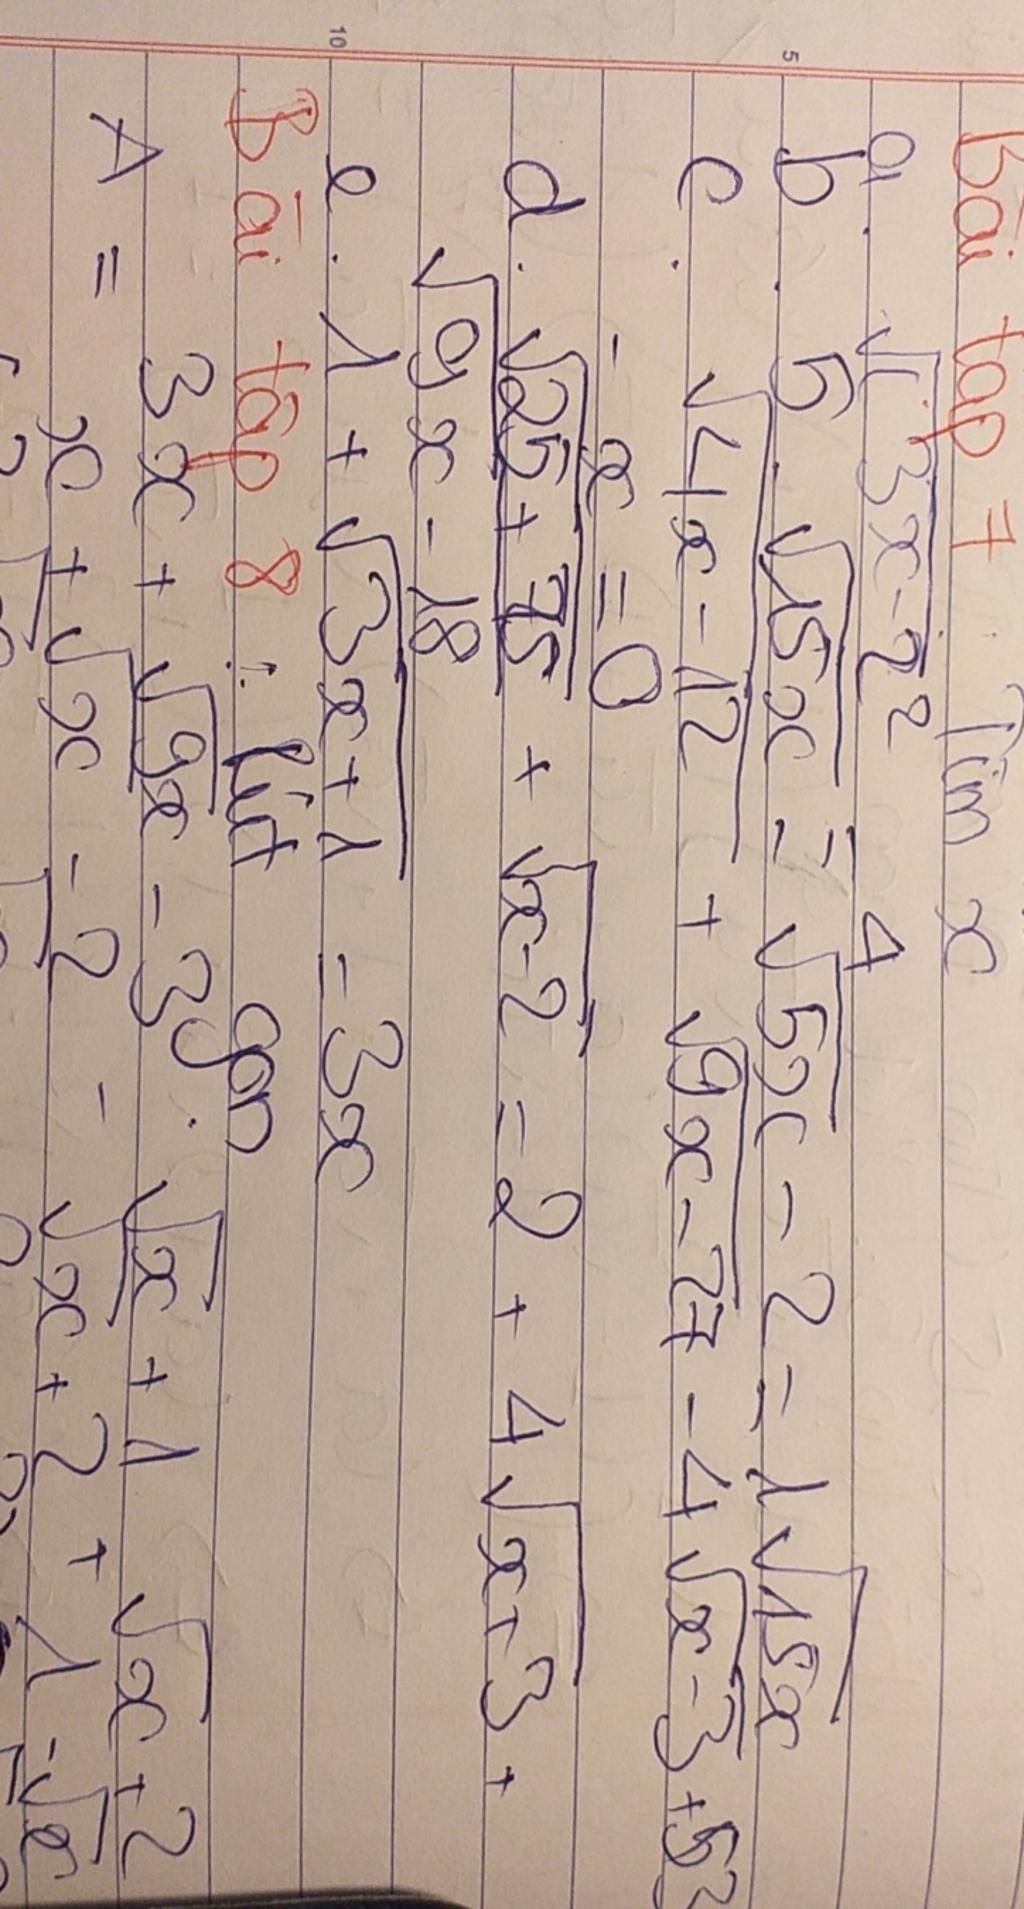 Bài tập 7 Tìm x
a. √(3x-2)² = 4
b. 5. √15x - √5x - 2 = 1√15x
c. √4x-12 + √9x-27 - 4√x-3 + 5
- x = 0
d. √25+75 + √x-2 = 2 + 4√x+3 +
√9x-18
e. 1 + √3x+1 = 3x
Bài tập 8 : Rút gọn
3x + √9x - 3 √x + 1 √x + 2
A = - +
x + √x - 2 √x + 2 1 - √x
10
5